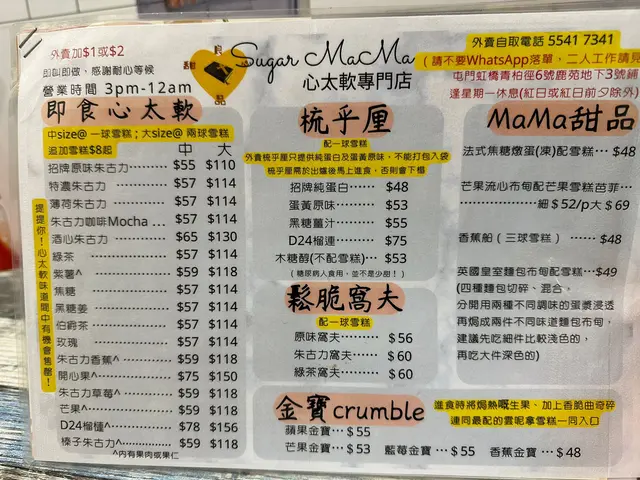 外賣加$1或$2
即叫即做、感謝耐心等候
營業時間 3pm-12am
良
品
Sugar MaMa
心太軟專門店
外賣自取電話 5541 7341
(請不要WhatsApp落單,二人工作請見
屯門虹橋青柏徑6號鹿苑地下3號鋪
逢星期一休息(紅日或紅日前夕除外)
即食心太軟
中size@ 一球雪糕;大size@ 兩球雪糕
追加雪糕$8起
中 大
招牌原味朱古力 $55 $110
特濃朱古力 $57 $114
薄荷朱古力 $57 $114
朱古力咖啡Mocha ... $57 $114
酒心朱古力 $65 $130
綠茶 $57 $114
紫薯^ $59 $118
焦糖 $57 $114
黑糖薑 $57 $114
伯爵茶 $57 $114
玫瑰 $57 $114
朱古力香蕉^ $59 $118
開心果^ $75 $150
朱古力草莓^ $59 $118
芒果^ $59 $118
D24榴槤^ $78 $156
榛子朱古力^ $59 $118
^內有果肉或果仁
提提你!心太軟味道間中有機會售罄!
梳乎厘
配一球雪糕
外賣梳乎厘只提供純蛋白及蛋黃原味,不能打包入袋
梳乎厘需於出爐後馬上進食,否則會下榻
招牌純蛋白 $48
蛋黃原味 $53
黑糖薑汁 $55
D24榴槤 $75
木糖醇(不配雪糕) $53
(糖尿病人食用,並不是少甜!)
鬆脆窩夫
配一球雪糕
原味窩夫 $56
朱古力窩夫 $60
綠茶窩夫 $60
MaMa甜品
法式焦糖燉蛋(凍)配雪糕 $48
芒果流心布甸配芒果雪糕芭菲
細$52/p大$69
香蕉船(三球雪糕) $48
英國皇室麵包布甸配雪糕 $49
(四種麵包切碎、混合,
分開用兩種不同調味的蛋漿浸透
再焗成兩件不同味道麵包布甸,
建議先吃細件比較淺色的,
再吃大件深色的)
金寶crumble
進食時將焗熱嘅生果、加上香脆曲奇碎
連同最配的雲呢拿雪糕一同入口
蘋果金寶 $55
芒果金寶 $53 藍莓金寶 $55 香蕉金寶 $48